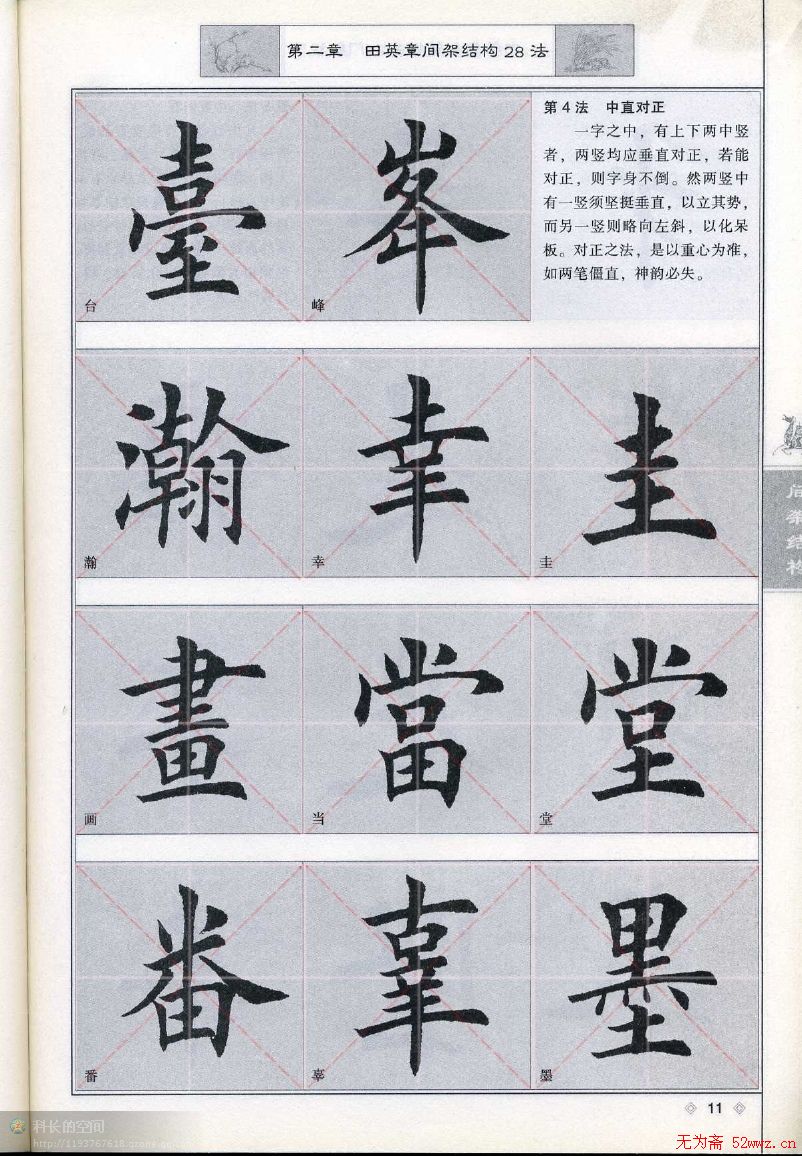 第二章 田英章间架结构28法
第4法 中直对正
一字之中，有上下两中竖
者，两竖均应垂直对正，若能
对正，则字身不倒。然两竖中
有一竖须坚挺垂直，以立其势，
而另一竖则略向左斜，以化呆
板。对正之法，是以重心为准，
如两笔僵直，神韵必失。
臺 峯
台 峰
瀚 幸 圭
瀚 幸 圭
畫 當 堂
画 当 堂
番 辜 墨
番 辜 墨
架结构
11
科长的空间
http://1193767618.qzone.qq.
无为斋 52wwz.cn